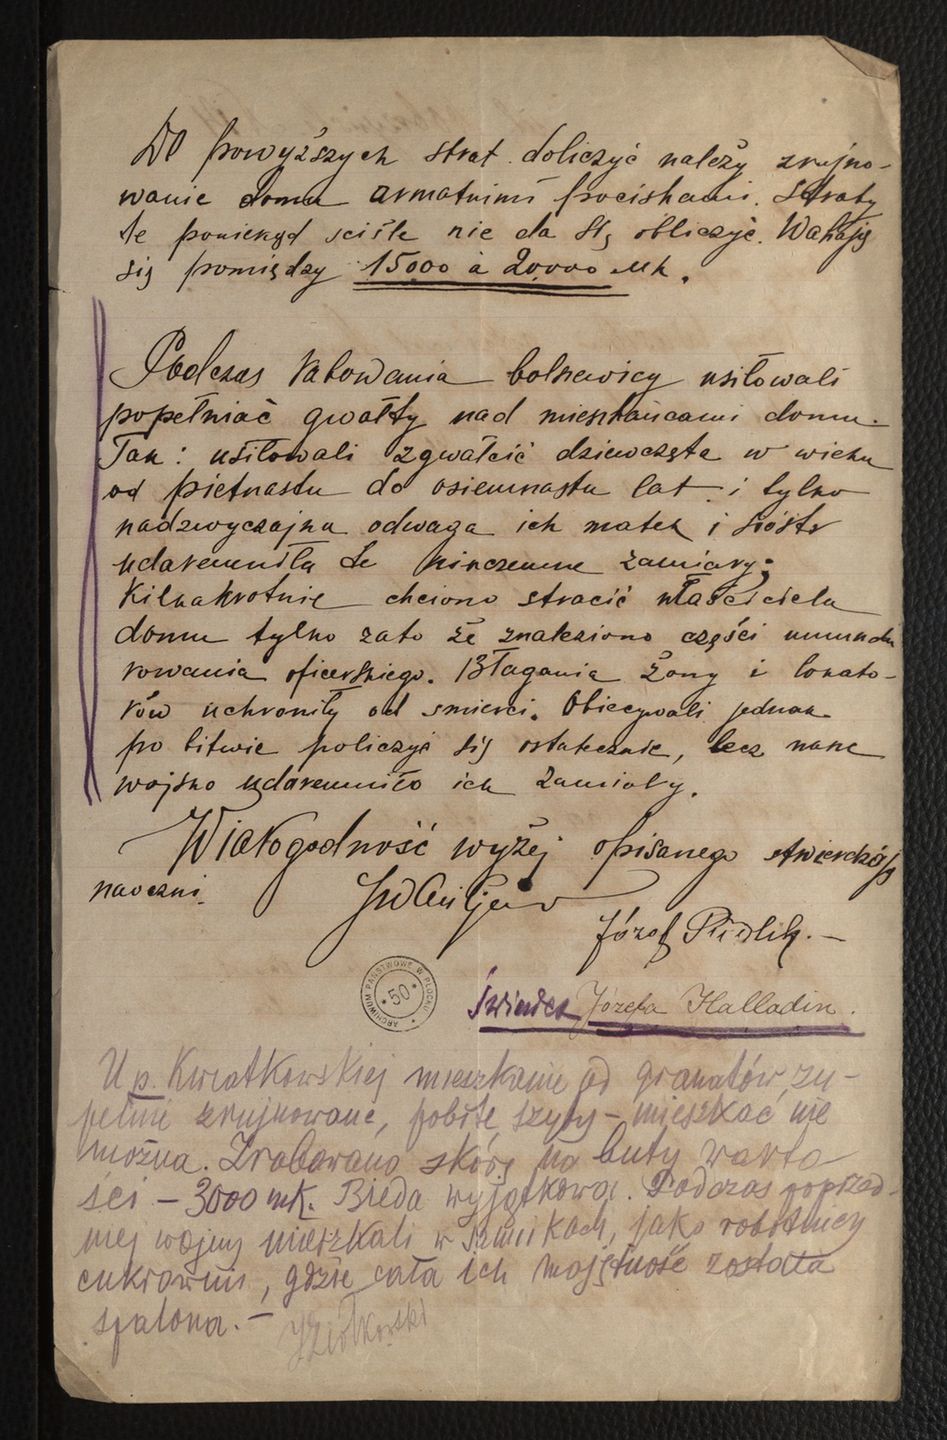 Do powyższych strat doliczyć należy zrujno-
wanie domu armatnimi pociskami. Straty
te poniekąd ściśle nie da się obliczyć. Wahają
się pomiędzy 15000 à 20,000 Mk.
Podczas rabowania bolszewicy usiłowali
popełniać gwałty nad mieszkańcami domu.
Tak: usiłowali zgwałcić dziewczęta w wieku
od pietnastu do osiemnastu lat i tylko
nadzwyczajna odwaga ich matek i sióstr
udaremniła te nikczemne zamiary;
Kilkakrotnie chciono stracić właściciela
domu tylko zato że znaleziono części umundu
rowania oficerskiego. Błagania żony i lokato-
rów uchroniły od smierci. Obiecywali jednak
po bitwie policzyć się ostatecznie, lecz nasze
wojsko udaremniło ich zamiary.
Wiarogodność wyżej opisanego stwierdzają
naoczni
Józef Pudlik. —
ARCHIWUM PAŃSTWOWE W PŁOCKU * 50 *
Świadek Józefa Halladin.
U p. Kwiatkowskiej mieszkanie od granatów zu-
pełnie zrujnowane, pobite szyby – mieszkać nie
można. Zrabowano skórę na buty warto
ści – 3000 mk. Bieda wyjątkowa. Podczas poprzed-
niej wojny mieszkali w jako robotnicy
cukrowni, gdzie cała ich majętność została
spalona. —
JZiółkowski